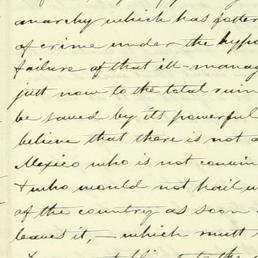 anarchy which has foster
of crime under the hypo
failure of that ill-manag
just now to the total ruin
be saved by its powerful
believe that there is not a
Mexico who is not convin
& who would not hail w
of the country as soon a
leaves it, – which must